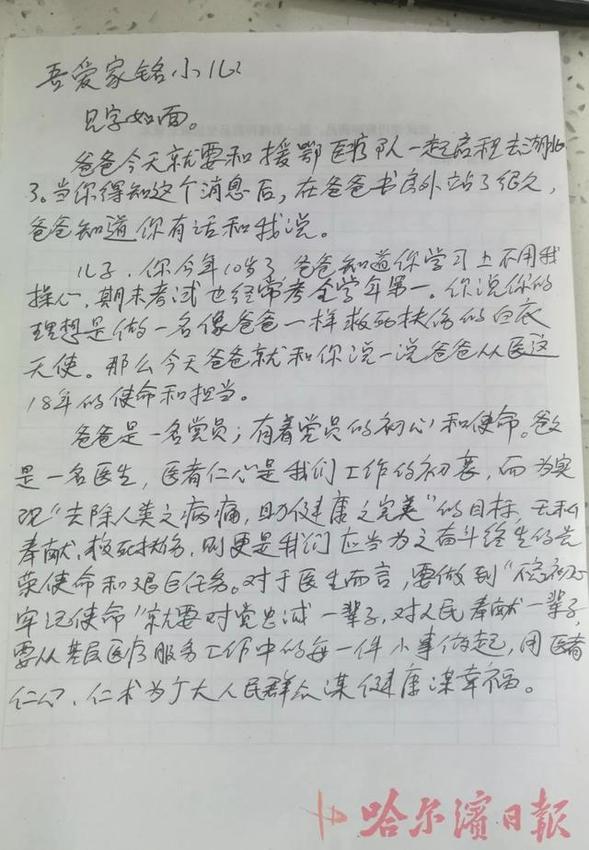 吾爱家铭小儿:
见字如面。
爸爸今天就要和援鄂医疗队一起启程去湖北
了。当你得知这个消息后,在爸爸书房外站了很久,
爸爸知道你有话和我说。
儿子,你今年10岁了,爸爸知道你学习上不用我
操心,期末考试也经常考全学年第一。你说你的
理想是做一名像爸爸一样救死扶伤的白衣
天使。那么今天爸爸就和你说一说爸爸从医这
18年的使命和担当。
爸爸是一名党员,有着党员的初心和使命。爸爸
是一名医生,医者仁心是我们工作的初衷,而为实
现“去除人类之病痛,助健康之完美”的目标,无私
奉献、救死扶伤,则更是我们应当为之奋斗终生的光
荣使命和艰巨任务。对于医生而言,要做到“不忘初心
牢记使命”就要对党忠诚一辈子,对人民奉献一辈子,
要从基层医疗服务工作中的每一件小事做起,用医者
仁心、仁术为广大人民群众谋健康谋幸福。
哈尔滨日报